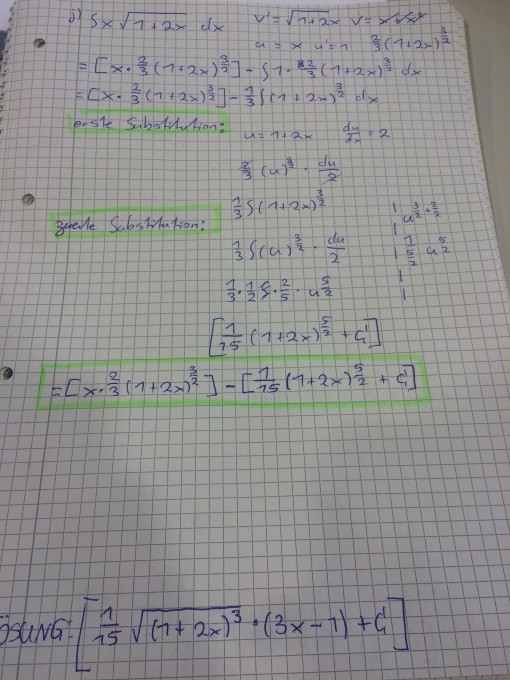 j) ∫x √(1+2x) dx   v' = √(1+2x)   v =
u = x   u' = 1   2/3 (1+2x)^(3/2)
= [x · 2/3 (1+2x)^(3/2)] - ∫1 · 2/3 (1+2x)^(3/2) dx
= [x · 2/3 (1+2x)^(3/2)] - 1/3 ∫(1+2x)^(3/2) dx
erste Substitution:   u = 1+2x   du/dx = 2
2/3 (u)^(3/2) · du/2
1/3 ∫(1+2x)^(3/2)   | u^(3/2+2/2)
zweite Substitution:
1/3 ∫(u)^(3/2) · du/2   | 1/(5/2) u^(5/2)
1/3 · 1/2 ∫ · 2/5 · u^(5/2)
[1/15 (1+2x)^(5/2) + C]
= [x · 2/3 (1+2x)^(3/2)] - [1/15 (1+2x)^(5/2) + C]
ÖSUNG: [1/15 √((1+2x)^3) · (3x-1) + C]